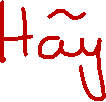 Hãy